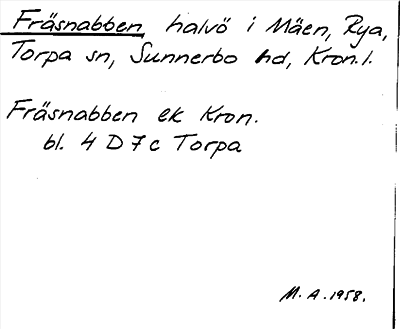 Fräsnabben, halvö i Mäen, Rya,
Torpa sn, Sunnerbo hd, Kron. l.
Fräsnabben ek Kron.
bl. 4 D 7 c Torpa
M. A. 1958.